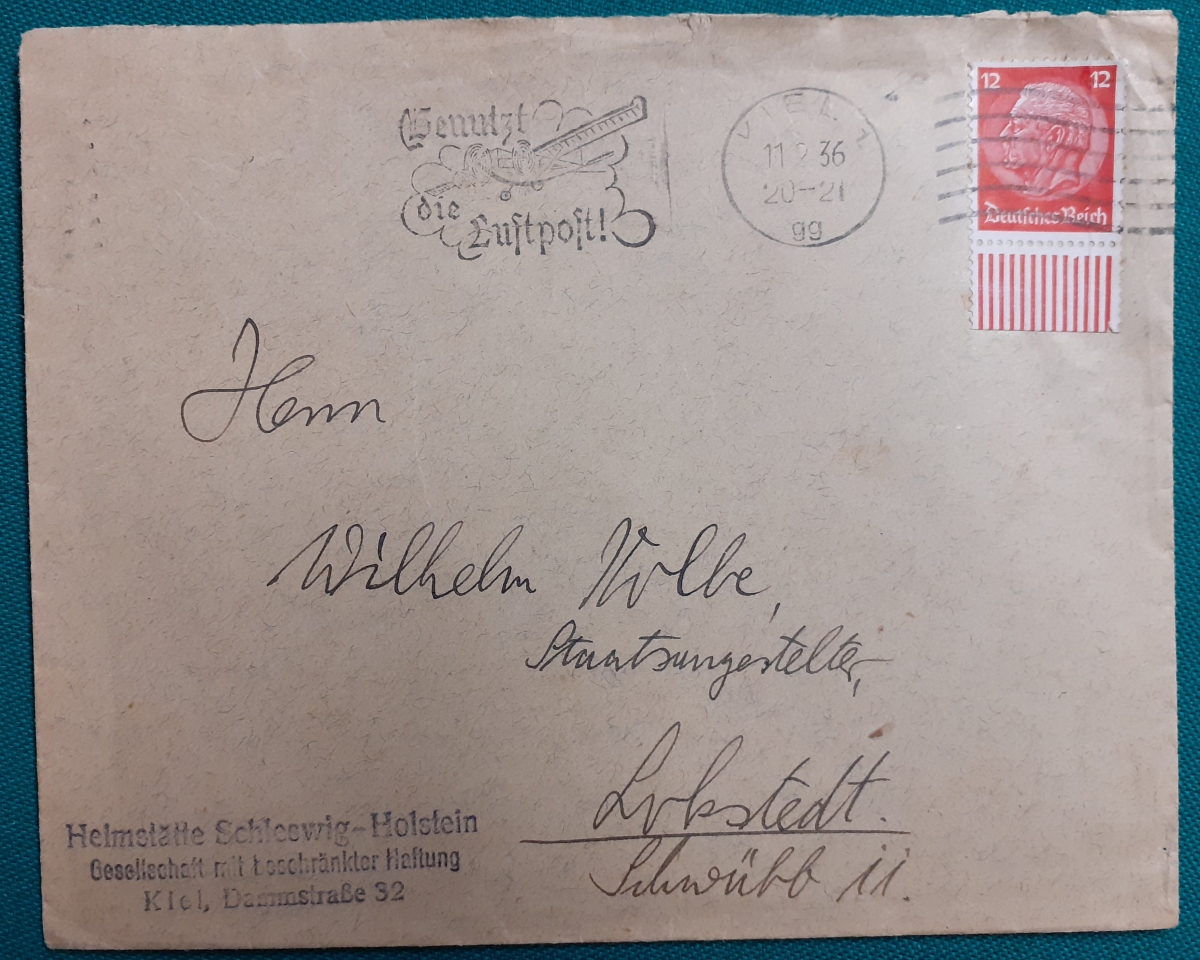 Benutzt
die Luftpost!
KIEL 1
11.2.36
20-21
gg
12 12
Deutsches Reich
Herrn
Wilhelm Nolbe,
Staatsangestelter,
Lokstedt.
Schwübb 11.
Heimstätte Schleswig-Holstein
Gesellschaft mit beschränkter Haftung
Kiel, Dammstraße 32